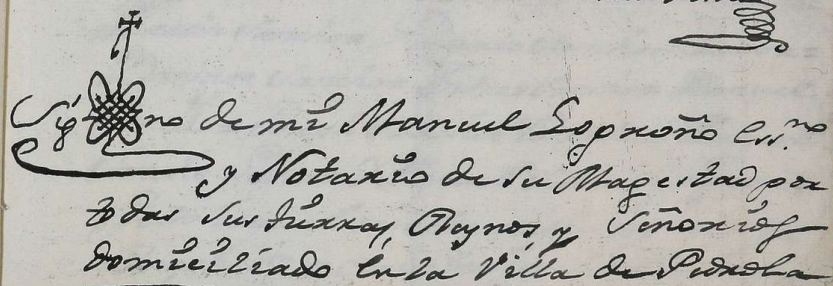 Sig no de mi Manuel Logroño Ess.no
y Notario de su Magestad por
todas sus tierras, Reynos y Señorios
domiciliado en la Villa de Pedrola